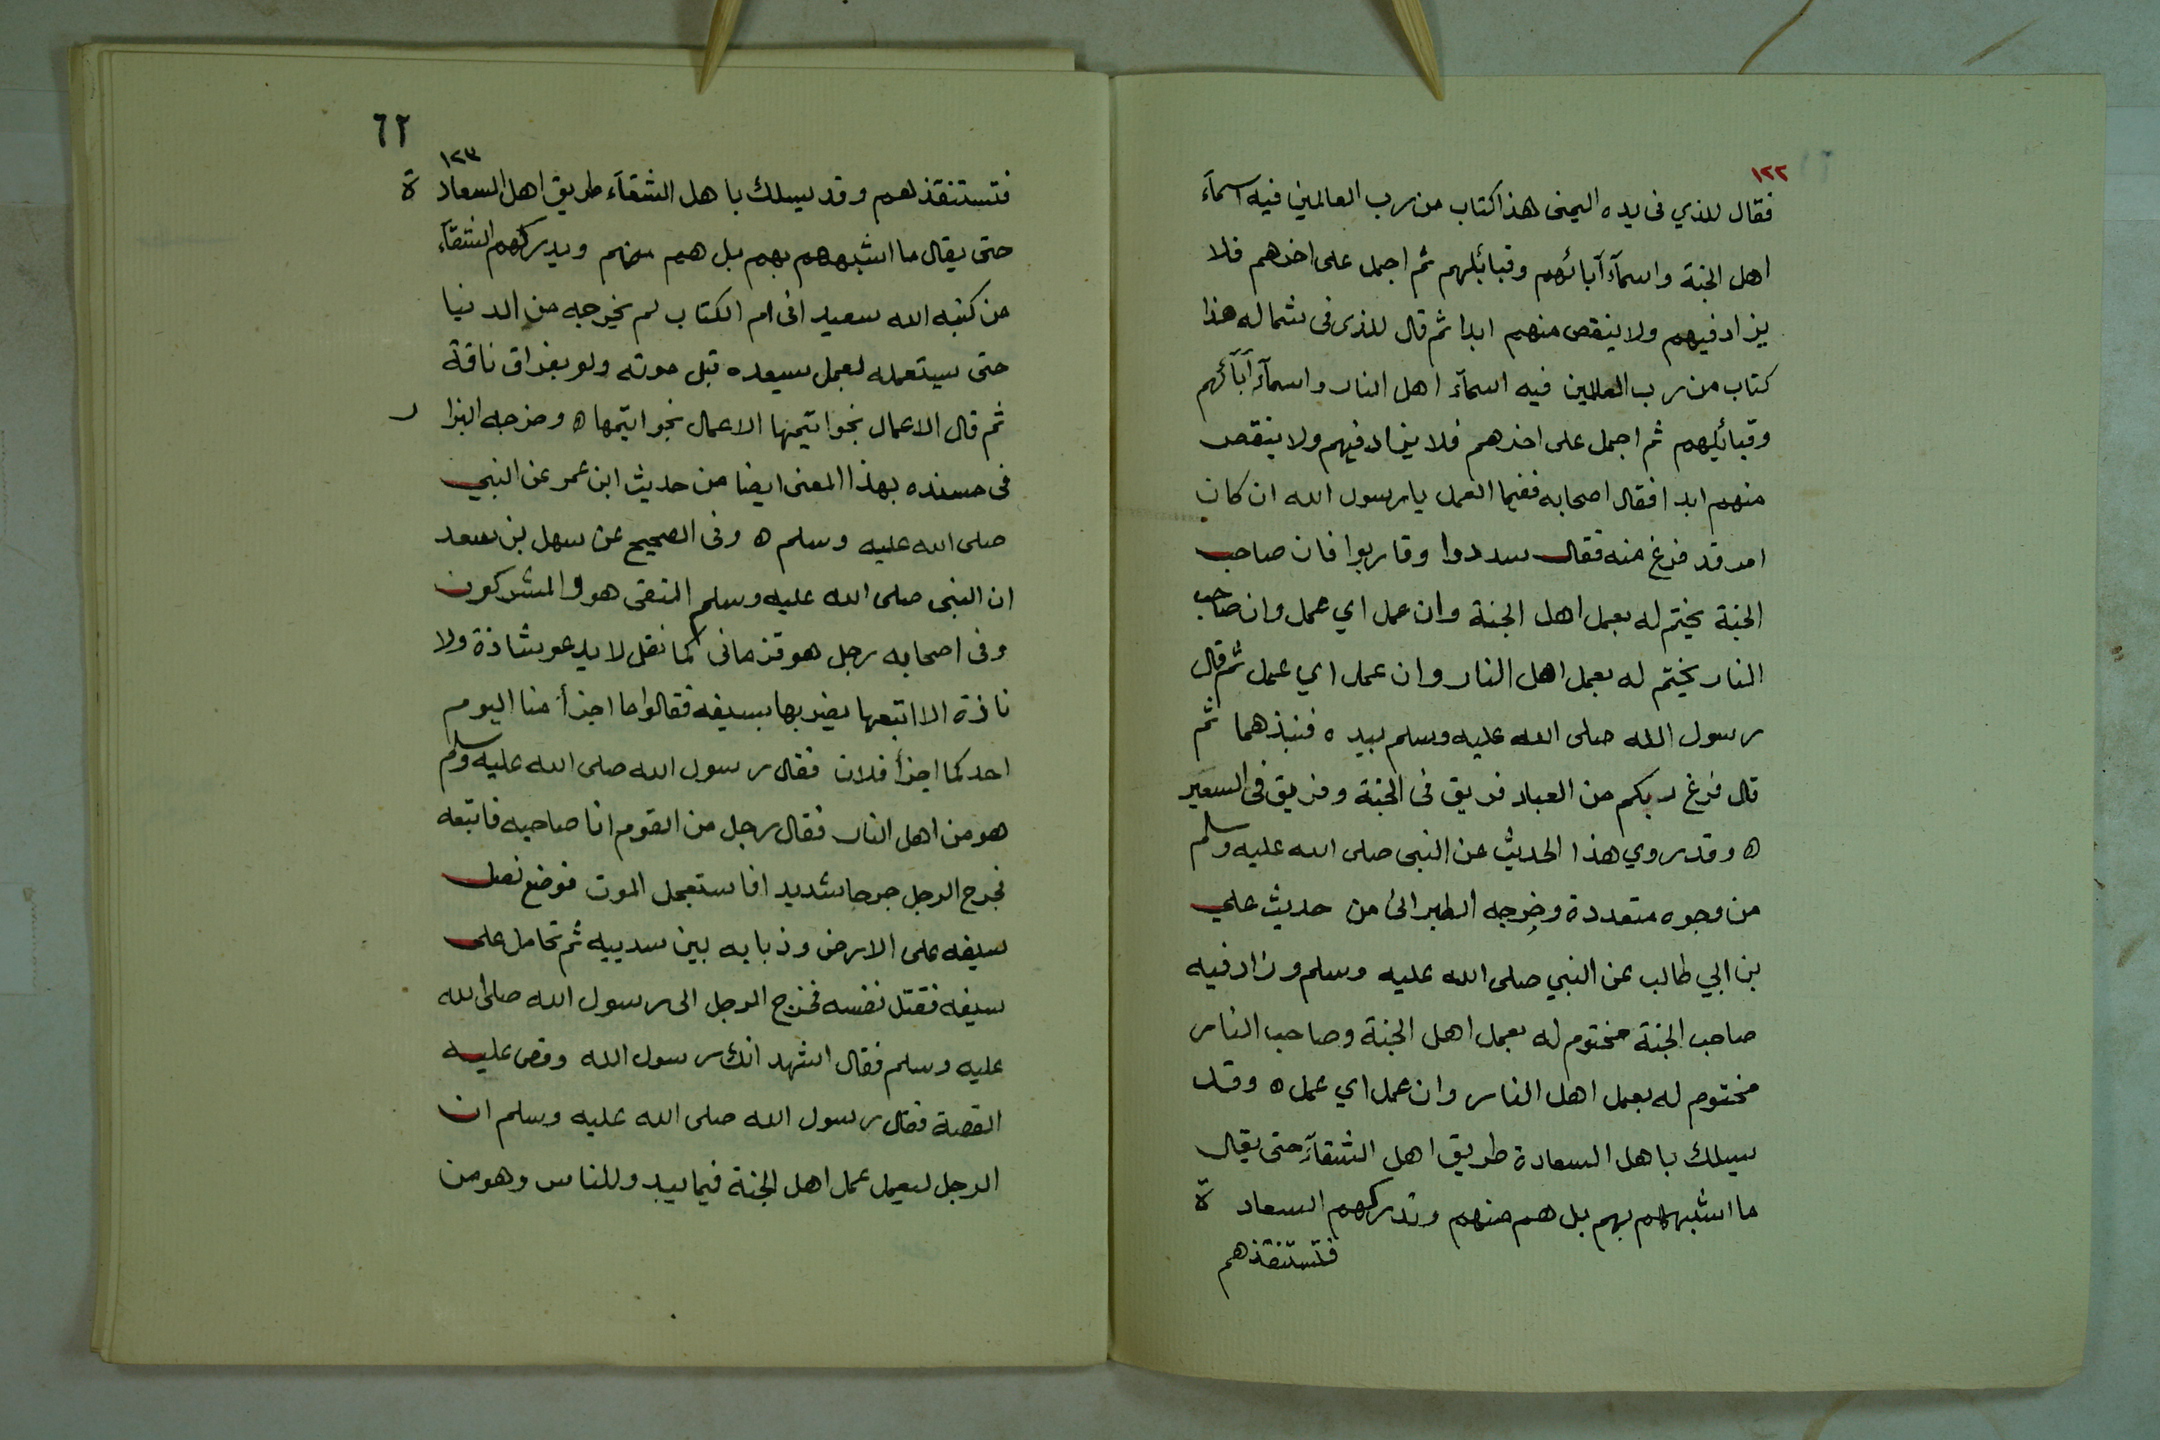 ١٢٢
فقال للذي فى يده اليمنى هذا كتاب من رب العالمين فيه اسمآء
اهل الجنة واسمآء آبائهم وقبائلهم ثم اجمل على اخرهم فلا
يزاد فيهم ولا ينقص منهم ابدا ثم قال للذى فى شماله هذا
كتاب من رب العالمين فيه اسمآء اهل النار واسمآء آبآئهم
وقبائيلهم ثم اجمل على اخرهم فلا يزاد فيهم ولا ينقص
منهم ابدا فقال اصحابه ففيما العمل يا رسول الله ان كان
امر قد فرغ منه فقال سددوا وقاربوا فان صاحب
الجنة يختم له بعمل اهل الجنة وان عمل اي عمل وان صاحب
النار يختم له بعمل اهل النار وان عمل اي عمل ثم قال
رسول الله صلى الله عليه وسلم بيده فنبذهما ثم
قال فرغ ربكم من العباد فريق فى الجنة وفريق فى السعير
ه وقد روي هذا الحديث عن النبى صلى الله عليه وسلم
من وجوه متعددة وخرجه الطبرانى من حديث علي
بن ابي طالب عن النبي صلى الله عليه وسلم وزاد فيه
صاحب الجنة مختوم له بعمل اهل الجنة وصاحب النار
مختوم له بعمل اهل النار وان عمل اي عمل ه وقد
سيلك باهل السعادة طريق اهل الشقآء حتى يقال
ما اشبههم بهم بل هم منهم وتدركهم السعاد ة
فتستنقذهم
٦٢
١٢٣
فتستنقذهم وقد يسلك باهل الشقآء طريق اهل السعاد ة
حتى يقال ما اشبههم بهم بل هم منهم ويدركهم الشقآء
من كتبه الله سعيدا فى ام الكتاب لم يخرجه من الدنيا
حتى يستعمله بعمل يسعده قبل موته ولو بفراق ناقة
ثم قال الاعمال بخواتيمها الاعمال بخواتيمها ه وخرجه البزا ر
فى مسنده بهذا المعنى ايضا من حديث ابن عمر عن النبي
صلى الله عليه وسلم ه وفى الصحيح عن سهل بن سعد
ان النبى صلى الله عليه وسلم التقى هو والمشركون
وفى اصحابه رجل هو قزمانى كما نقل لا يدعو شاذة ولا
ناذة الا اتبعها يضربها بسيفه فقالوا ما اجزأ منا اليوم
احد كما اجزأ فلان فقال رسول الله صلى الله عليه وسلم
هو من اهل النار فقال رجل من القوم انا صاحبه فاتبعه
فجرح الرجل جرحا شديدا فاستعجل الموت فوضع نصل
سيفه على الارض وذبابه بين سدييه ثم تحامل على
سيفه فقتل نفسه فخرج الرجل الى رسول الله صلى الله
عليه وسلم فقال اشهد انك رسول الله وقص عليه
القصة فقال رسول الله صلى الله عليه وسلم ان
الرجل ليعمل عمل اهل الجنة فيما يبدو للناس وهو من